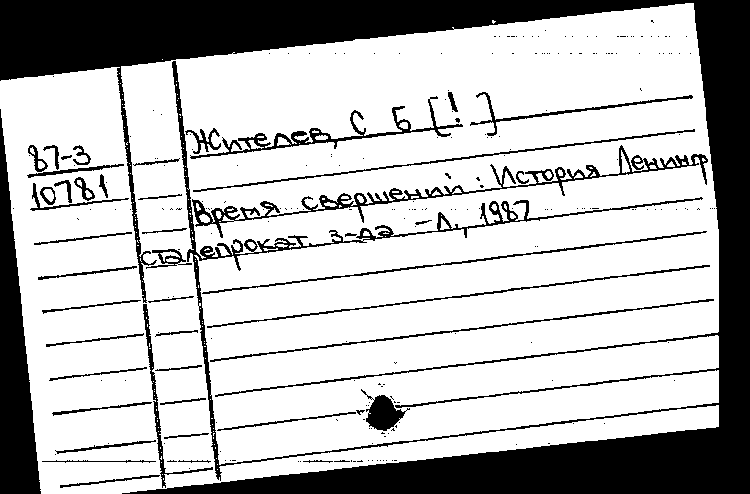 87-3
10781
Жителев, С Б [!]
Время свершений: История Ленингр
сталепрокат. з-да. -Л., 1987